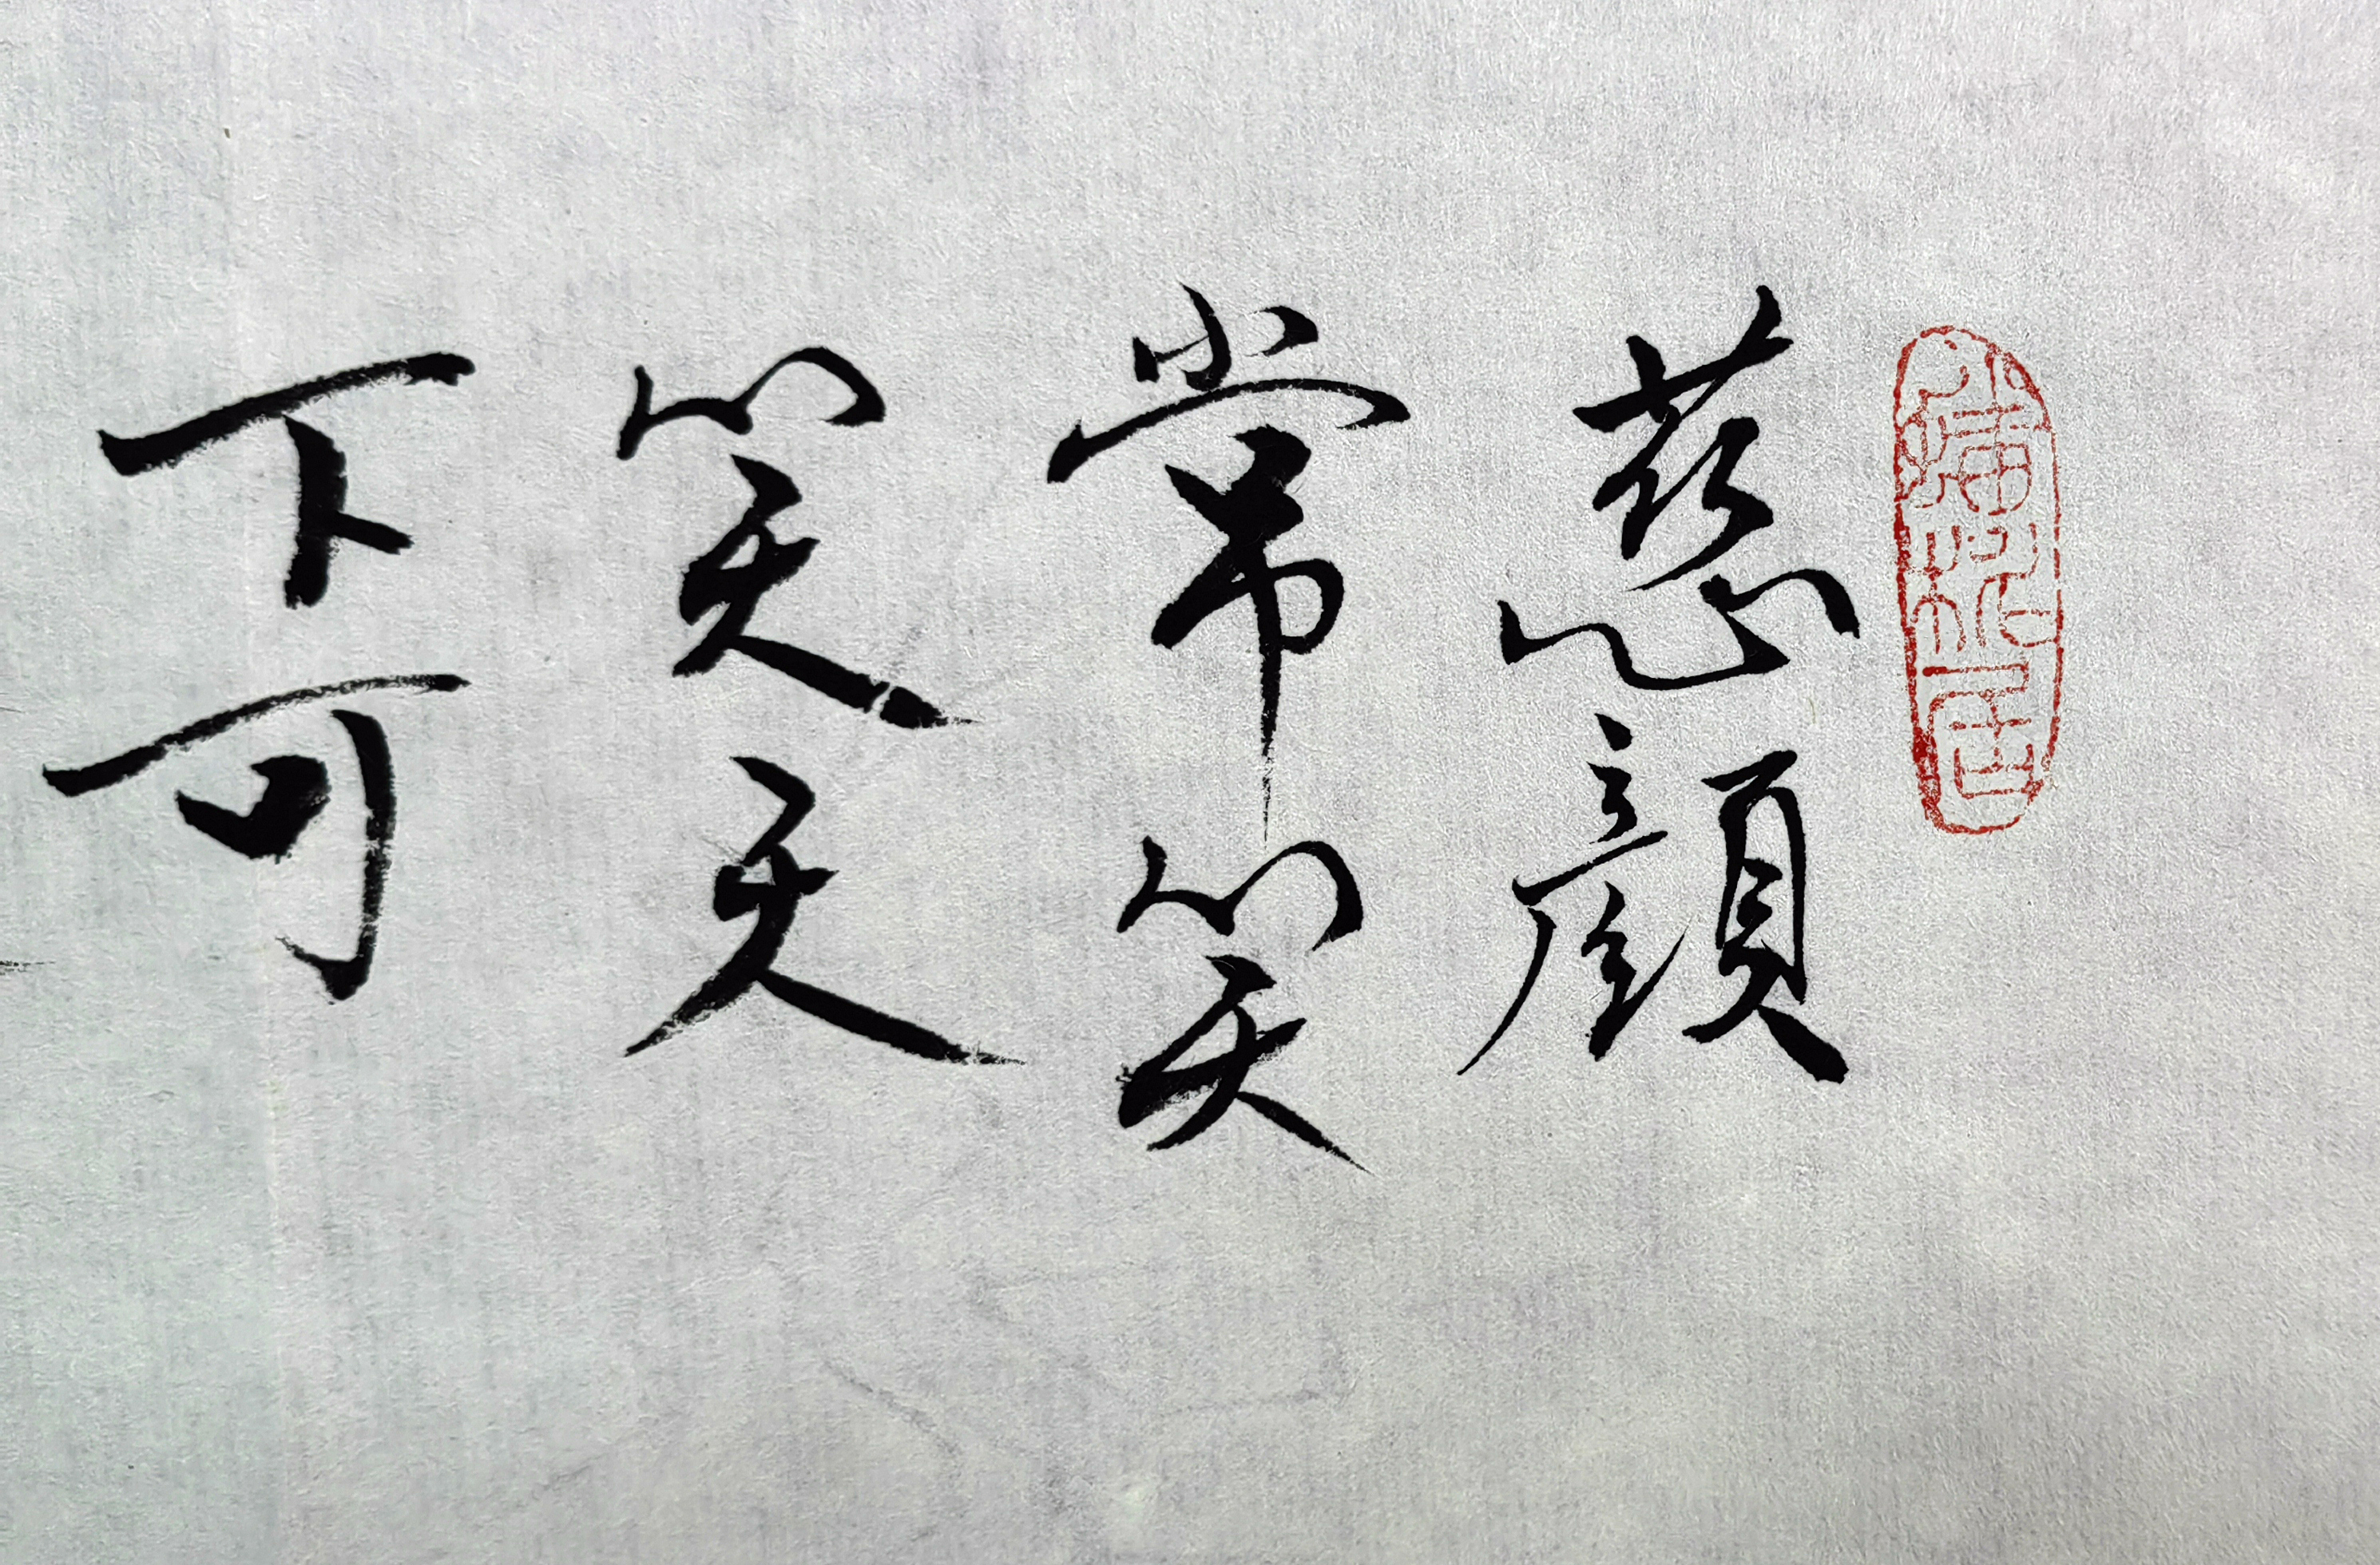 慈顔
常笑
笑天
下可